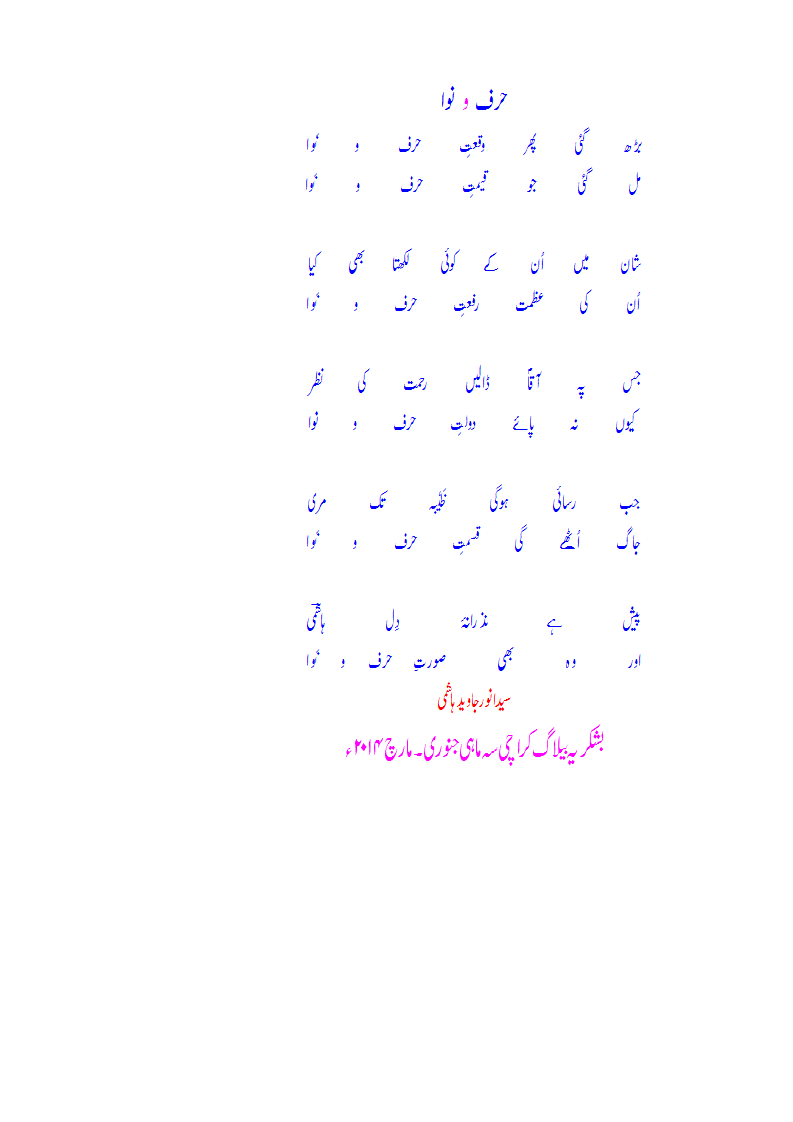 حرف و نوا
بڑھ گئی پھر وقعتِ حرف و نَوا
مل گئی جو قیمتِ حرف و نَوا
شان میں اُن کے کوئی لکھتا بھی کیا
اُن کی عظمت رفعتِ حرف و نَوا
جس پہ آقاؐ ڈالیں رحمت کی نظر
کیوں نہ پائے دولتِ حرف و نوا
جب رسائی ہوگی طَیّبہ تک مری
جاگ اُٹھے گی قسمتِ حرف و نَوا
پیش ہے نذرانۂ دِل ہاشمیؔ
اور وہ بھی صورتِ حرف و نَوا
سیدانورجاوید ہاشمی
بشکریہ بیلاگ کراچی سہ ماہی جنوری۔مارچ ۲۰۱۴ء